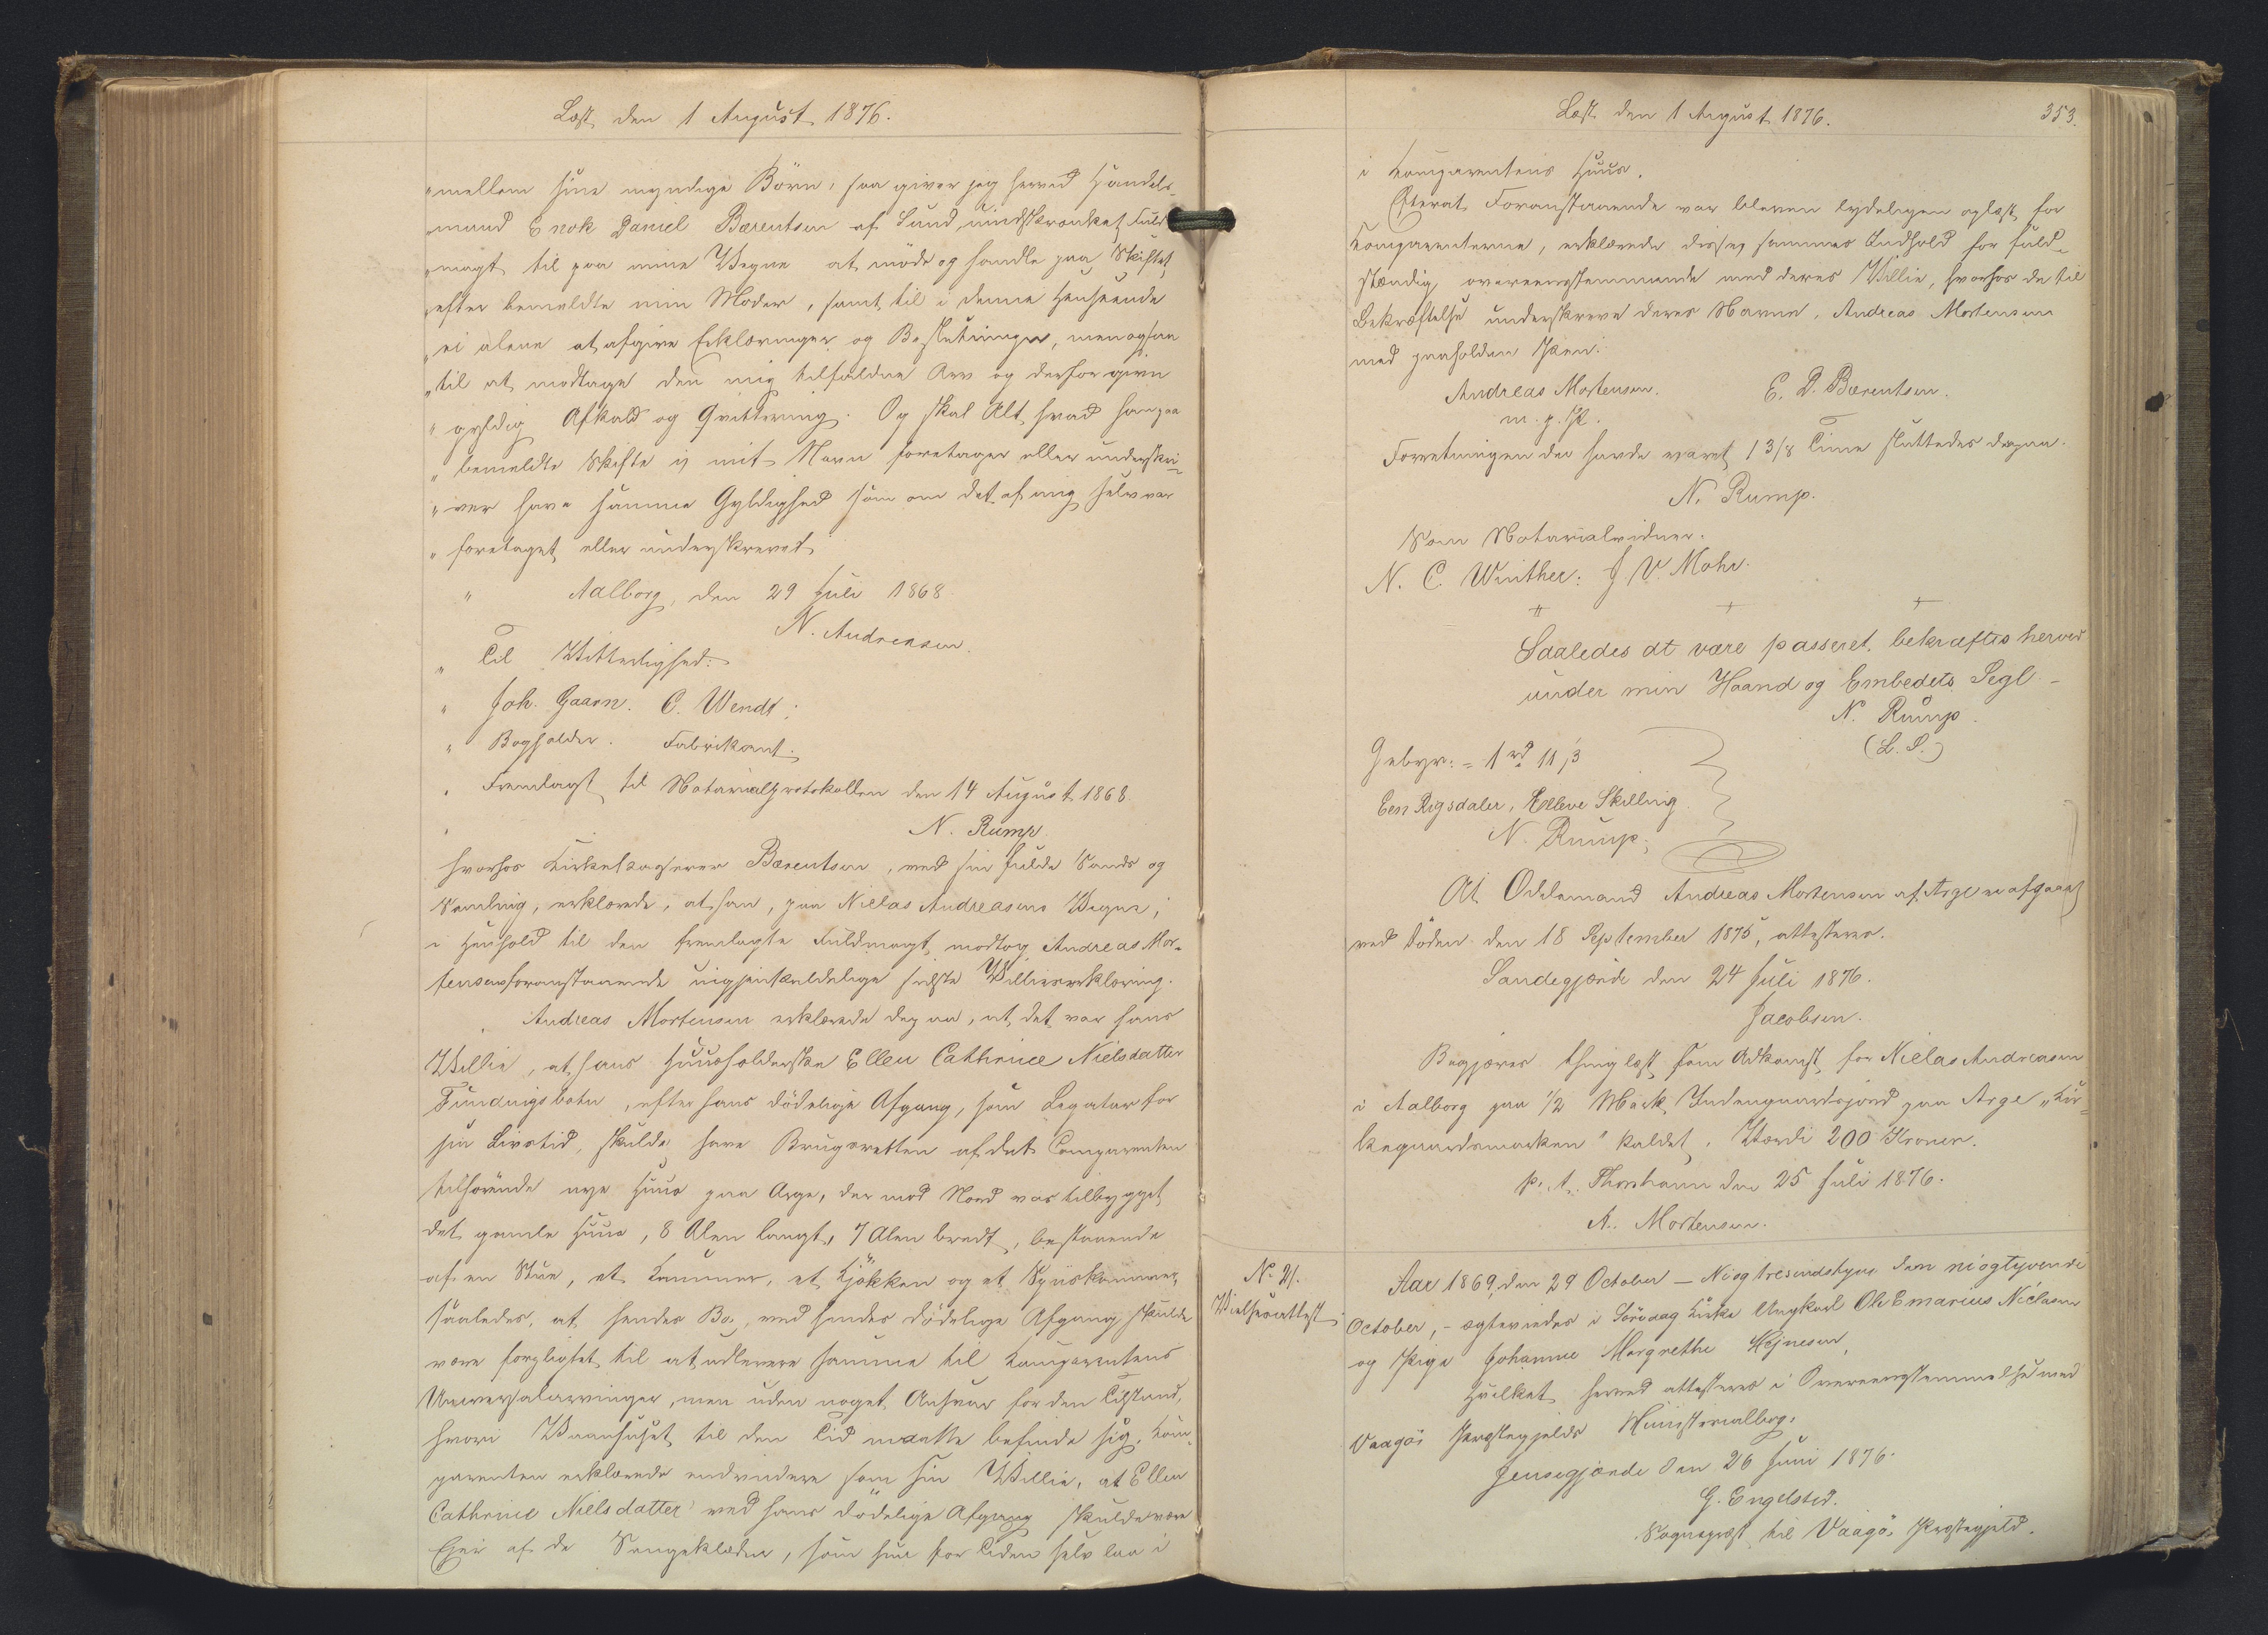 Læst den 1 August 1876.
"mellem sine myndige Börn, saa giver jeg herved Handels-
"mand Enok Daniel Bærentsen af Sund, uindskrænket Fuld-
"magt til paa mine Vegne at möde og handle paa Skiftet
"efter bemeldte min Moder, samt til i denne Henseende
"ei alene at afgive Erklæringer og Beslutninger, men ogsaa
"til at modtage den mig tilfaldne Arv og derfor give
"gyldig Afkald og Qvittering. Og skal Alt, hvad han paa
"bemeldte Skifte i mit Navn foretager eller underskri-
"ver have samme Gyldighed som om det af mig selv var
"foretaget eller underskrevet.
" Aalborg, den 29 Juli 1868.
N. Andreasen.
" Til Vitterlighed:
" Joh. Gaarn. C. Wendt;
" Bogholder. Fabrikant.
" Fremlagt til Notarialprotokollen den 14 August 1868.
" N. Rump.
hvorhos Kirkekasserer Bærentsen, ved sin fulde Sands og
Samling, erklærede, at han, paa Nielas Andreasens Vegne,
i Henhold til den fremlagte Fuldmagt, modtog Andreas Mor-
tensens foranstaaende uigjenkaldelige sidste Villieserklæring.
Andreas Mortensen erklærede derpaa, at det var hans
Villie, at hans Huusholderske Ellen Cathrine Nielsdatter
Fundingsbotn, efter hans dödelige Afgang, som Legatar for
sin Livstid, skulde have Brugsretten af det Comparenten
tilhörende nye Huus paa Arge, der mod Nord var tilbygget
det gamle Huus, 8 Alen langt, 7 Alen bredt, bestaaende
af en Stue, et Kammer, et Kjökken og et Spiiskammer,
saaledes, at hendes Bo, ved hendes dödelige Afgang skulde
være forpligtet til at udlevere samme til Komparentens
Universalarvinger, men uden noget Ansvar for den Tilstand,
hvori Vaanhuset til den Tid maatte befinde sig. Kom-
parenten erklærede endvidere som sin Villie, at Ellen
Cathrine Nielsdatter ved hans dödelige Afgang skulde være
Eier af de Sengeklæder, som hun for Tiden selv laa i
Læst den 1 August 1876.
353.
i Komparentens Huus.
Efterat Foranstaaende var bleven tydeligen oplæst for
Komparenterne, erklærede disse, sammes Indhold for fuld-
stændig overeensstemmende med deres Villie, hvorhos de til
Bekræftelse underskreve deres Navne, Andreas Mortensen
med paaholden Pen.
Andreas Mortensen. E. D. Bærentsen.
m. p. P.
Forretningen der havde varet 1 3/8 Time sluttedes derpaa.
N. Rump.
Som Notarialvidner.
N. C. Winther: J. V. Mohr.
Saaledes at være passeret, bekræftes herved
under min Haand og Embedets Segl -
N. Rump.
(L. S.)
Gebyr: = 1 rd 11 ß
Een Rigsdaler, Elleve Skilling.
N. Rump;
At Odelsmand Andreas Mortensen af Arge er afgaaet
ved Döden den 18 September 1875, attesteres.
Sandegjærde den 24 Juli 1876.
Jacobsen.
Begjæres thinglæst som Adkomst for Nielas Andreasen
i Aalborg paa 1/2 Mark Indengaardsjord paa Arge "Kir-
kegaardsmarken" kaldet. Værdi 200 Kroner.
p. t. Thorshavn den 25 Juli 1876.
A. Mortensen.
No 21.
Vielsesattest
Aar 1869, den 29 October - Niogtresindstyve den niogtyvende
October, - ægteviedes i Sörvaag Kirke Ungkarl Ole Emarius Niclasen
og Pige Johanne Margrethe Hejnesen,
Hvilket herved attesteres i Overeensstemmelse med
Vaagös Præstegjelds Ministerialbog.
Jensegjærde den 26 Juni 1876.
G. Engelsted.
Sognepræst til Vaagös Præstegjeld.